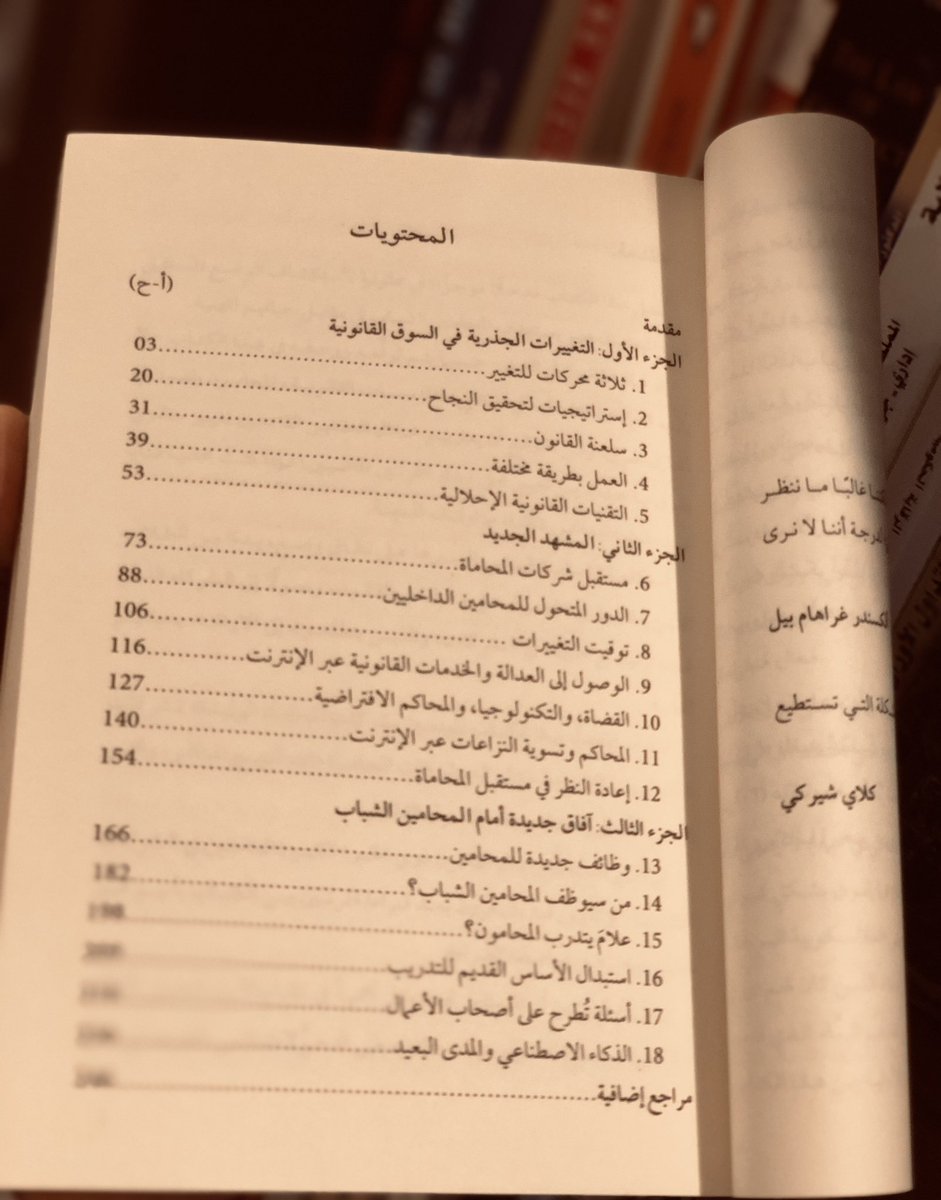 المحتويات
مقدمة (أ-ح)
الجزء الأول: التغييرات الجذرية في السوق القانونية
1. ثلاثة محركات للتغيير 03
2. إستراتيجيات لتحقيق النجاح 20
3. سلعنة القانون 31
4. العمل بطريقة مختلفة 39
5. التقنيات القانونية الإحلالية 53
الجزء الثاني: المشهد الجديد
6. مستقبل شركات المحاماة 73
7. الدور المتحول للمحامين الداخليين 88
8. توقيت التغييرات 106
9. الوصول إلى العدالة والخدمات القانونية عبر الإنترنت 116
10. القضاة، والتكنولوجيا، والمحاكم الافتراضية 127
11. المحاكم وتسوية النزاعات عبر الإنترنت 140
12. إعادة النظر في مستقبل المحاماة 154
الجزء الثالث: آفاق جديدة أمام المحامين الشباب
13. وظائف جديدة للمحامين 166
14. من سيوظف المحامين الشباب؟ 182
15. علامَ يتدرب المحامون؟
16. استبدال الأساس القديم للتدريب
17. أسئلة تُطرح على أصحاب الأعمال
18. الذكاء الاصطناعي والمدى البعيد
مراجع إضافية
غالبًا ما ننظر
لدرجة أننا لا نرى
ألكسندر غراهام بيل
التي تستطيع
كلاي شيركي